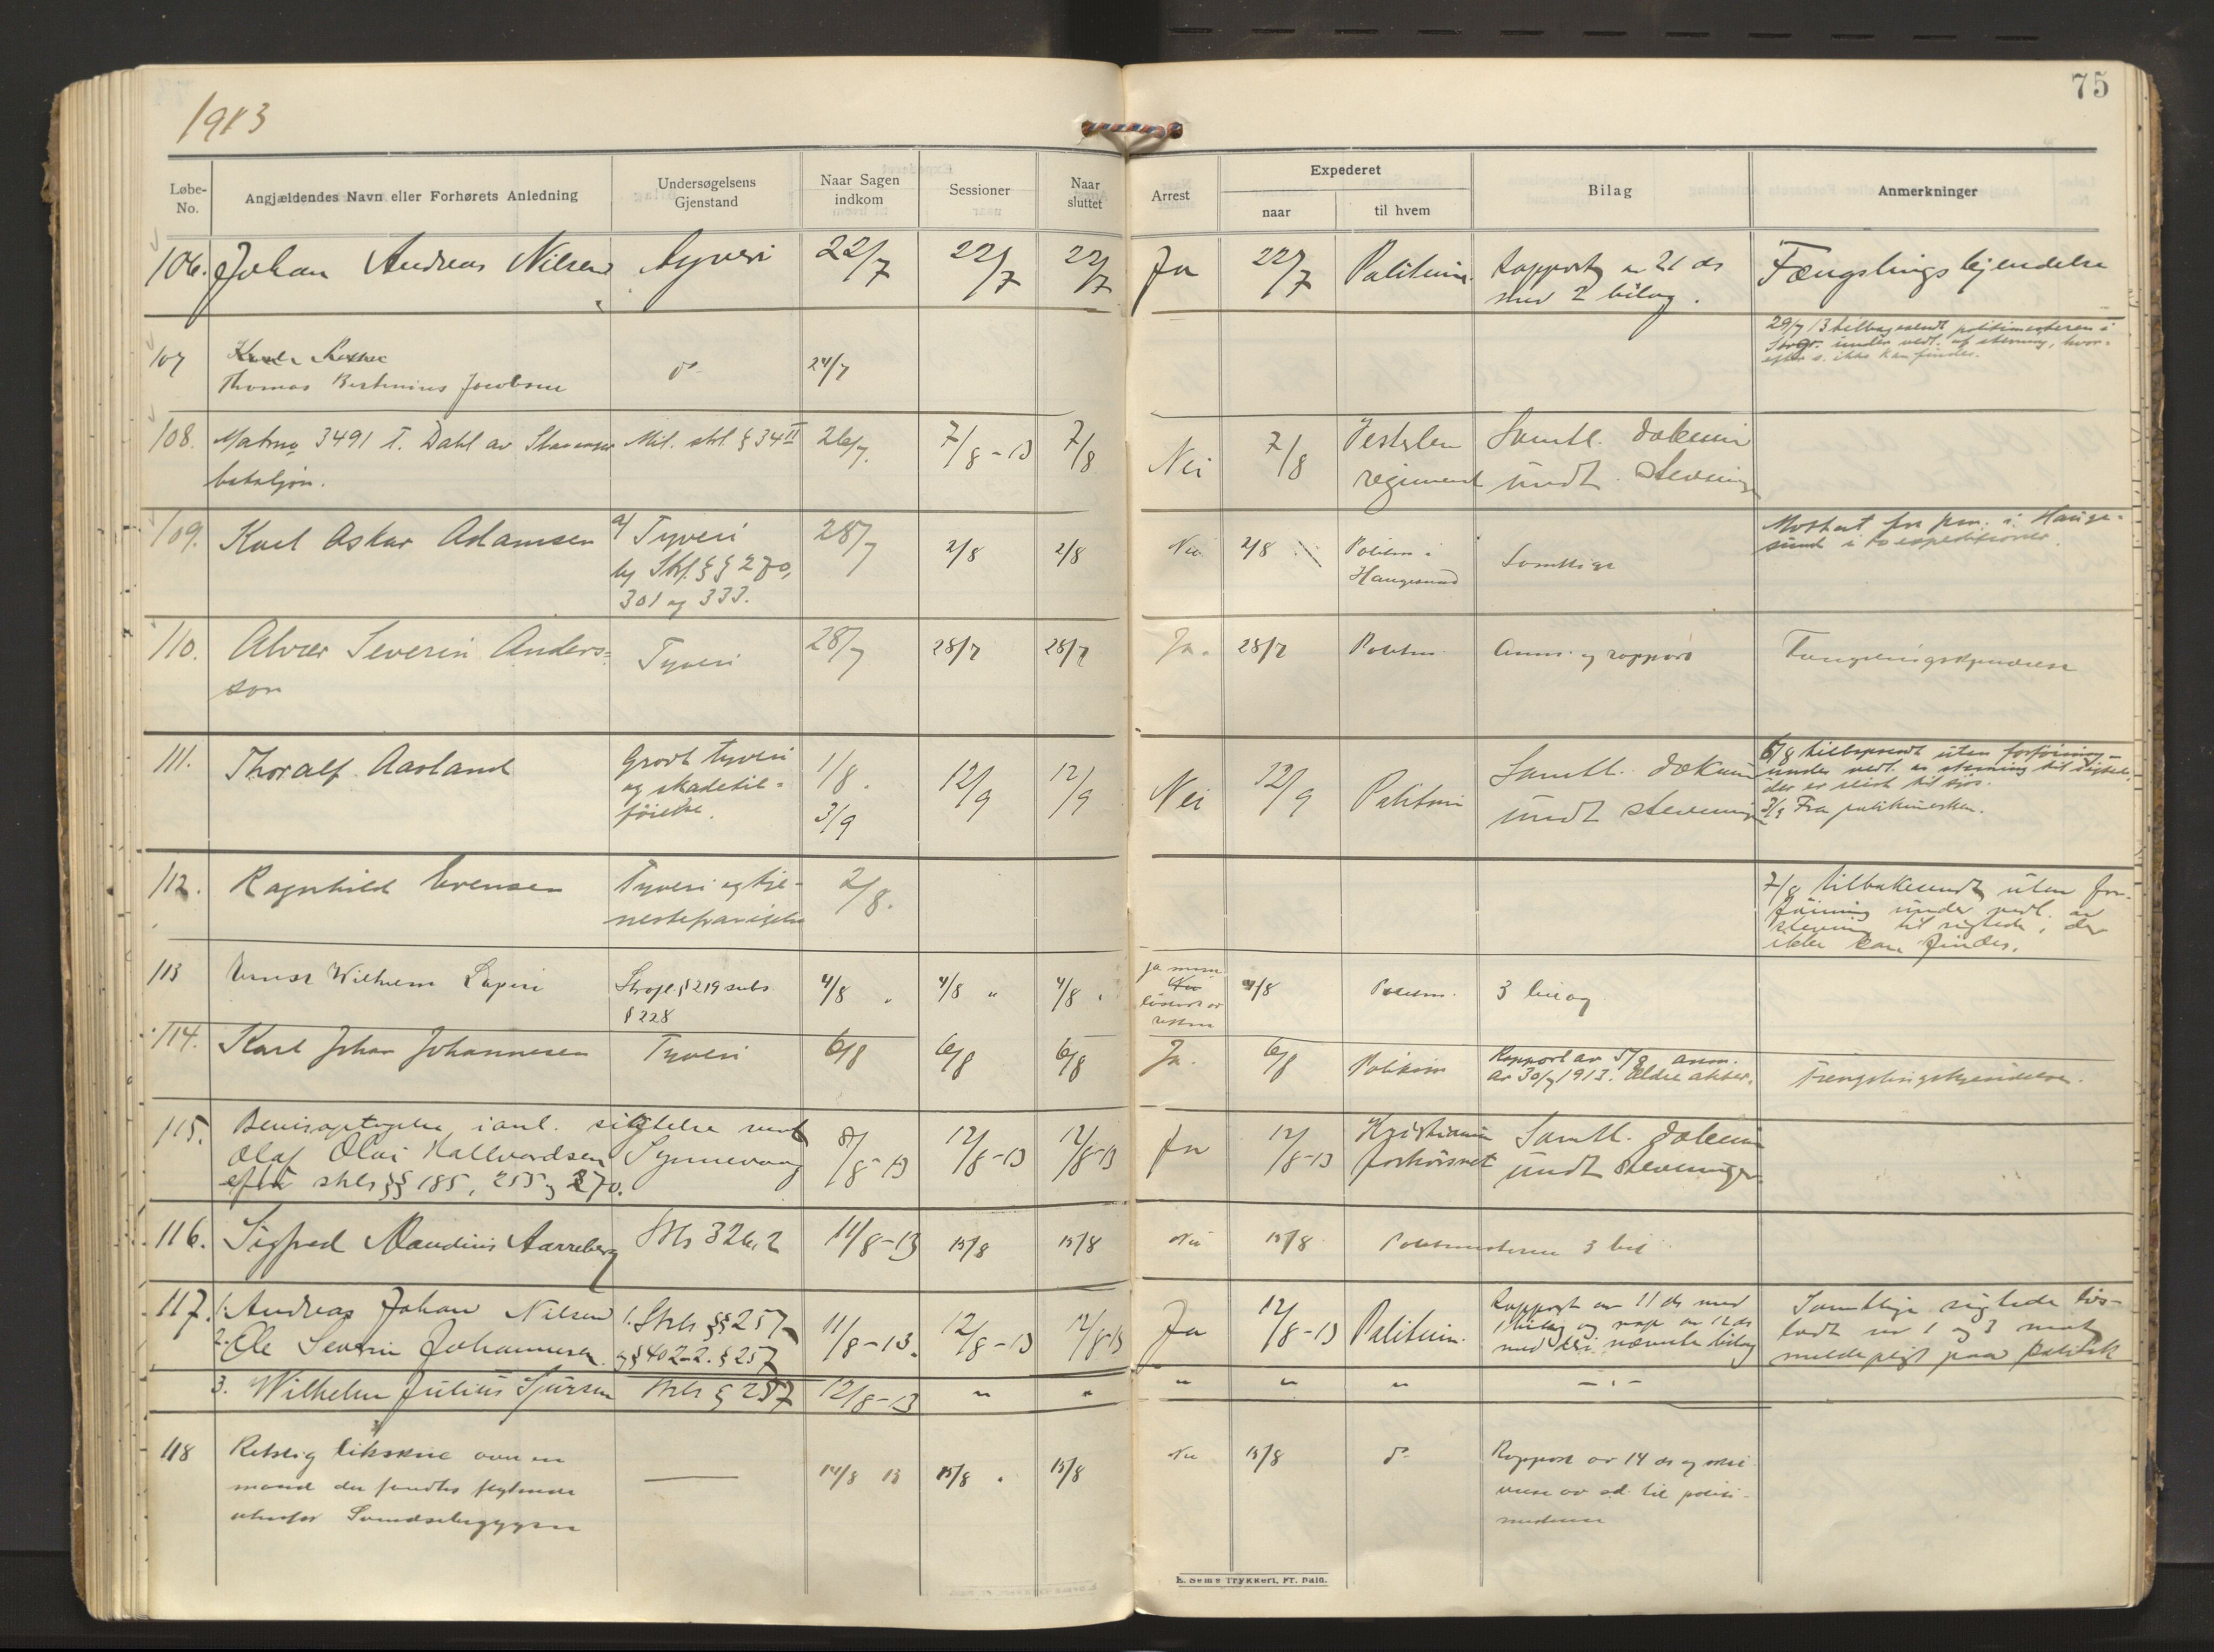 75
1913
Løbe-No.
Angjældendes Navn eller Forhørets Anledning
Undersøgelsens Gjenstand
Naar Sagen indkom
Sessioner
Naar sluttet
Arrest
Expederet
naar
til hvem
Bilag
Anmerkninger
106. Johan Andreas Nilsen Tyveri 22/7 22/7 22/7 Ja 22/7 Politim. Rapport av 21 ds Fængslingskjendelse
med 2 bilag.
107 Thomas Bertinius Jacobsen do 24/7
29/7 13 tilbagesendt politimesteren i
under vedl. af stevning, hvor-
efter s. ikke kan findes.
108. Matros 3491 T. Dahl av Stavanger Mil. strl. § 34 II 26/7. 7/8-13 7/8 Nei 7/8 Vesterlen Samtl. dokum
bataljon.
regiment undt. stevning
109. Karl Oskar Adamsen a) Tyveri 28/7 2/8 2/8 Nei 2/8 Politim i Haugesund Samtlige
b) Strl. §§ 270,
301 og 333.
Mottat fra pm. i Hauge-
sund i to expeditioner.
110. Alvær Severin Anders- Tyveri 28/7 28/7 28/7 Ja. 28/7 Politim. Anm. og rapport Fængslingskjendelse
son
111. Thoralf Aasland Grovt tyveri 1/8. 12/9 12/9 Nei 12/9 Politim Samtl. dokum
og skadetil- 3/9
føielse.
undt stevning
6/8 tilbakesendt uten forføining
under vedl. av stevning til sigtede,
der er reist til sjøs.
3/9 Fra politimesteren.
112. Ragnhild Evensen Tyveri og tje- 2/8.
nestefravigelse
7/8 tilbakesendt uten for-
føining under vedl. av
stevning til sigtede, der
ikke kan findes.
113 Ernst Wilhelm Strafl § 219 subs 4/8 " 4/8 " 4/8 " Ja men 4/8 Politim. 3 bilag
§ 228
løslatt av
retten
114. Karl Johan Johannesen Tyveri 6/8 6/8 6/8 Ja. 6/8 Politim Rapport av 5/8 anm. Fængslingskjendelse.
av 30/7 1913. Ældre akter.
115. Bevisoptagelse i anl. sigtelse mot 8/8-13 12/8-13 12/8-13 Ja 12/8-13 Kristiania Samtl. dokum
Olaf Olai Hallvardsen Synnevaag forhørsret undt stevninger
efter strls §§ 185, 255 og 270.
116. Sigfred Maudius Aarreberg Strls 326,2 11/8-13 15/8 15/8 Nei 15/8 Politimesteren 3 bil
117. 1. Andreas Johan Nilsen 1. Strls §§ 257 11/8-13. 12/8-13 12/8-13 Ja 12/8-13 Politim. Rapport av 11 ds med
2. Ole Severin Johannesen og § 402-2. § 257 1 bilag og rap av 12 ds
med deri nævnte bilag
Samtlige sigtede løs-
latt nr 1 og 3 mot
meldepligt paa politik
3. Wilhelm Julius Sjursen Strls § 257 12/8-13 " " " " " - " -
118 Retslig likskue over en 14/8 13 15/8 " 15/8 Nei 15/8 do Rapport av 14 ds og skri-
mand der fandtes flytende velse av sd. til politi-
utenfor Sundsebryggen mesteren
E. Sem's Trykkeri, Fr. hald.